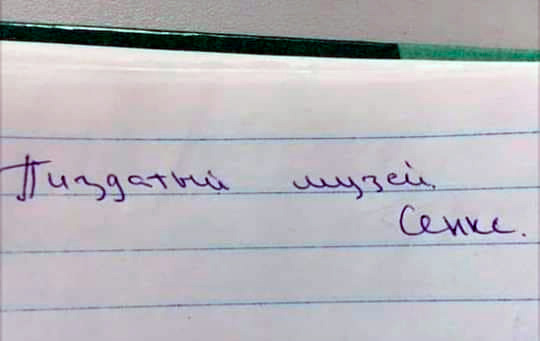 Пиздатый музей.
Сенкс.